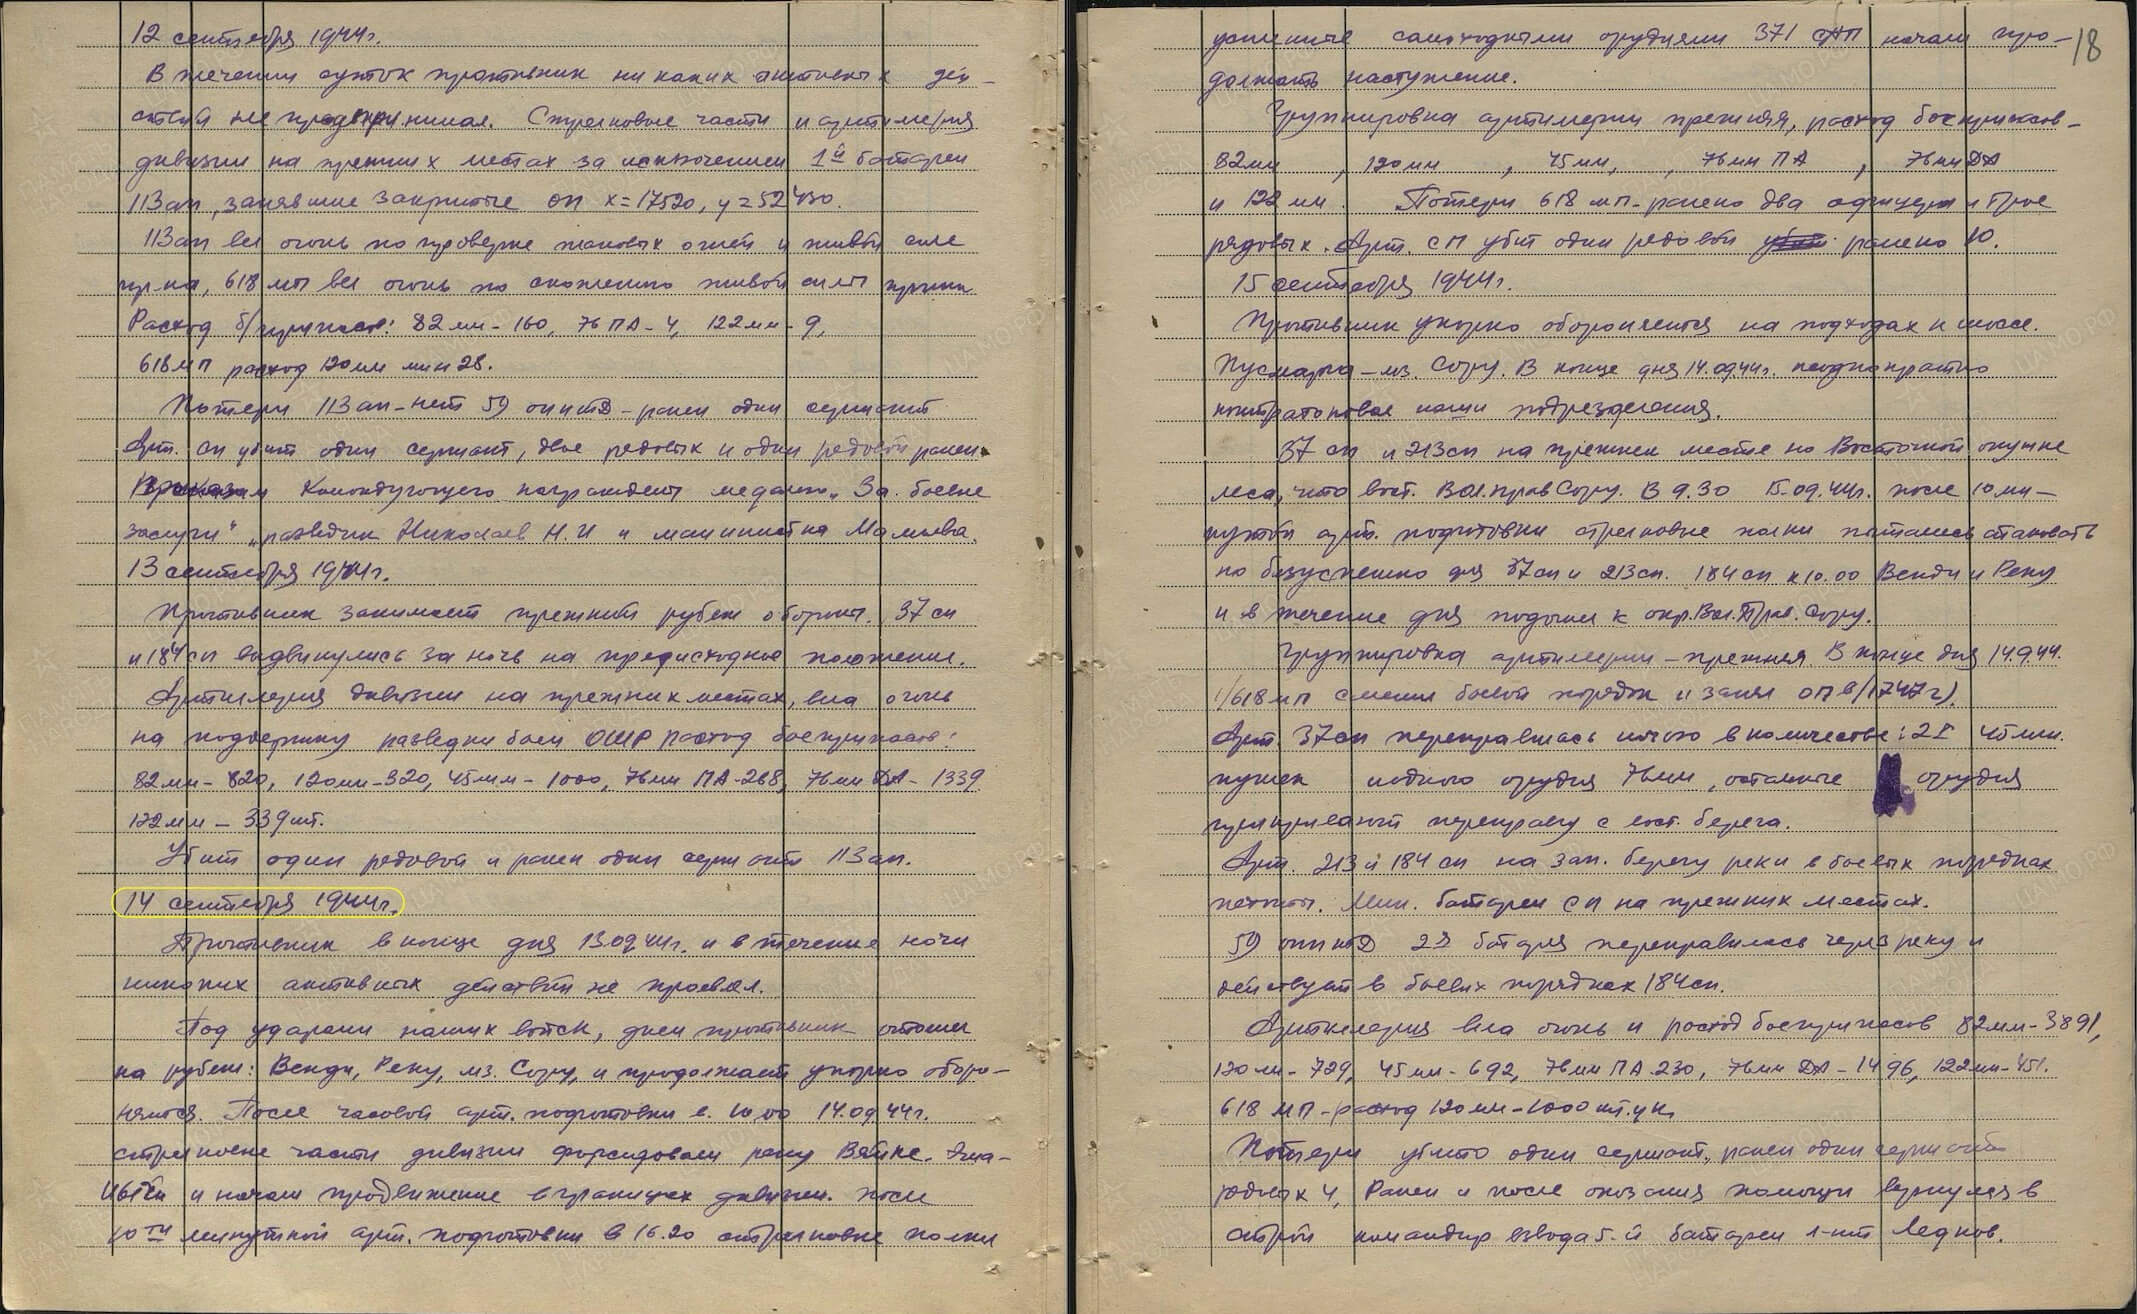 12 сентября 1944г.
В течении суток противник ни каких активных дей-
ствий не предпринимал. Стрелковые части и артиллерия
дивизии на прежних местах за исключением 1й батареи
113 ап, занявшие закрытые оп х=17520, у=52430.
113 ап вел огонь по проверке таковых огней и живой силе
пр-ка, 618 мп вел огонь по скоплению живой силы против
Расход б/припасов: 82 мм - 160, 76 ПА - 4, 122 мм - 9,
618 мп расход 120 мм мин 28.
Потери 113 ап - нет 59 опитд - ранен один сержант
Арт. сп убит один сержант, двое редовых и один редовой ранен.
Приказом Командующего награждены медалью „За боевые
заслуги" разведчик Николаев Н.И и машинистка Мамаева.
13 сентября 1944г.
Противник занимает прежний рубеж обороны. 37 сп
и 184 сп выдвинулись за ночь на предисходное положение.
Артиллерия дивизии на прежних местах, вела огонь
на поддержку разведки боем ОШР расход боеприпасов:
82 мм - 820, 120 мм - 320, 45 мм - 1000, 76 мм ПА - 268, 76 мм ДА - 1339
122 мм - 339 шт.
Убит один редовой и ранен один сержант 113 ап.
14 сентября 1944г.
Противник в конце дня 13.09.44г. и в течение ночи
никаких активных действий не проявлял.
Под ударами наших войск, днем противник отошел
на рубеж: Венди, Реку, мз. Сору, и продолжает упорно оборо-
няться. После часовой арт. подготовки в 10.00 14.09.44г.
стрелковые части дивизии форсировали реку Вяйке-Эма-
йыги и начали продвижение в границах дивизии. после
10ти минутной арт. подготовки в 16.20 стрелковые полки
18
усиленные самоходными орудиями 371 САП начали про-
должать наступление.
Группировка артиллерии прежняя, расход боеприпасов -
82 мм , 120 мм , 45 мм, , 76 мм ПА , 76 мм ДА
и 122 мм. Потери 618 мп - ранено два офицера и трое
рядовых. Арт. сп убит один редовой убит ранено 10.
15 сентября 1944г.
Противник упорно обороняется на подходах к шоссе.
Кусмарна - мз. Сору. В конце дня 14.09.44г. неоднократно
контратаковал наши подразделения.
37 сп и 213 сп на прежнем месте по Восточной опушке
леса, что вост. Вол.прав Сору. В 9.30 15.09.44г. после 10 ми-
нутной арт. подготовки стрелковые полки пытались атаковать
но безуспешно для 37 сп и 213 сп. 184 сп к 10.00 Венди и Реку
и в течение дня подошел к окр. Вол.Прав. Сору.
Группировка артиллерии - прежняя. В конце дня 14.9.44.
1/618 мп сменил боевой порядок и занял оп в (1747г).
Арт. 37 сп переправилась ночью в количестве: 2х 45 мм.
пушек и одного орудия 76 мм, остальные орудия
прикрывают переправу с вост. берега.
Арт. 213 и 184 сп на зап. берегу реки в боевых порядках
пехоты. Мин. батареи сп на прежних местах.
59 опитд 2я батарея переправилась через реку и
действует в боевых порядках 184 сп.
Артиллерия вела огонь и расход боеприпасов 82 мм - 3891,
120 мм - 729, 45 мм - 692, 76 мм ПА 230, 76 мм ДА - 1496, 122 мм - 451.
618 мп - расход 120 мм - 1000 штук.
Потери убито один сержант, ранен один сержант
редовых 4, Ранен и после оказания помощи вернулся в
строй командир взвода 5-й батареи л-нт Ледков.